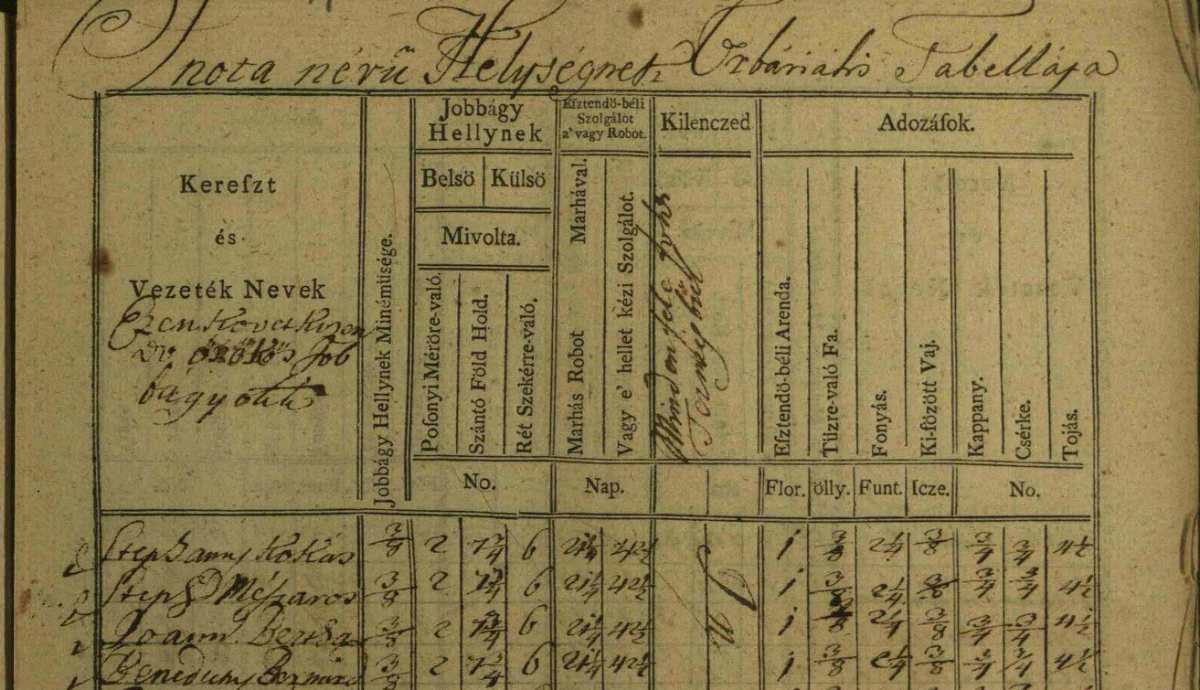 Inota nevű Helységnek Urbáriális Tabellája
Kerefzt
és
Vezeték Nevek
Ezen Következen
dő örökös Job
bágyok
Jobbágy Hellynek Minémüsége.
Jobbágy
Hellynek
Belsö Külsö
Mivolta.
Pofonyi Méröre-való.
Szántó Föld Hold.
Rét Szekérre-való.
No.
Efztendö-béli
Szolgálot
a' vagy Robot.
Marhás Robot Marhával.
Vagy e' hellet kézi Szolgálot.
Nap.
Kilenczed
Mindenféle
Adozáfok.
Efztendö-béli Arenda.
Tüzre-való Fa.
Fonyás.
Ki-fözött Vaj.
Kappany.
Csérke.
Tojás.
Flor. ölly. Funt. Icze. No.
Stephanus Kokas 3/8 2 7 2/4 6 21 1/4 42 1/2 1 3/8 2 1/4 3/8 3/4 3/4 4 1/2
Steph Mészaros 3/8 2 6 21 1/4 42 1/2 1 3/8 2 1/4 3/8 3/4 3/4 4 1/2
Joann 3/8 2 6 21 1/4 42 1/2 1 3/8 2 1/4 3/8 3/4 3/4 4 1/2
3/8 2 7 2/4 6 21 1/4 42 1/2 1 3/8 2 1/4 3/8 3/4 3/4 4 1/2